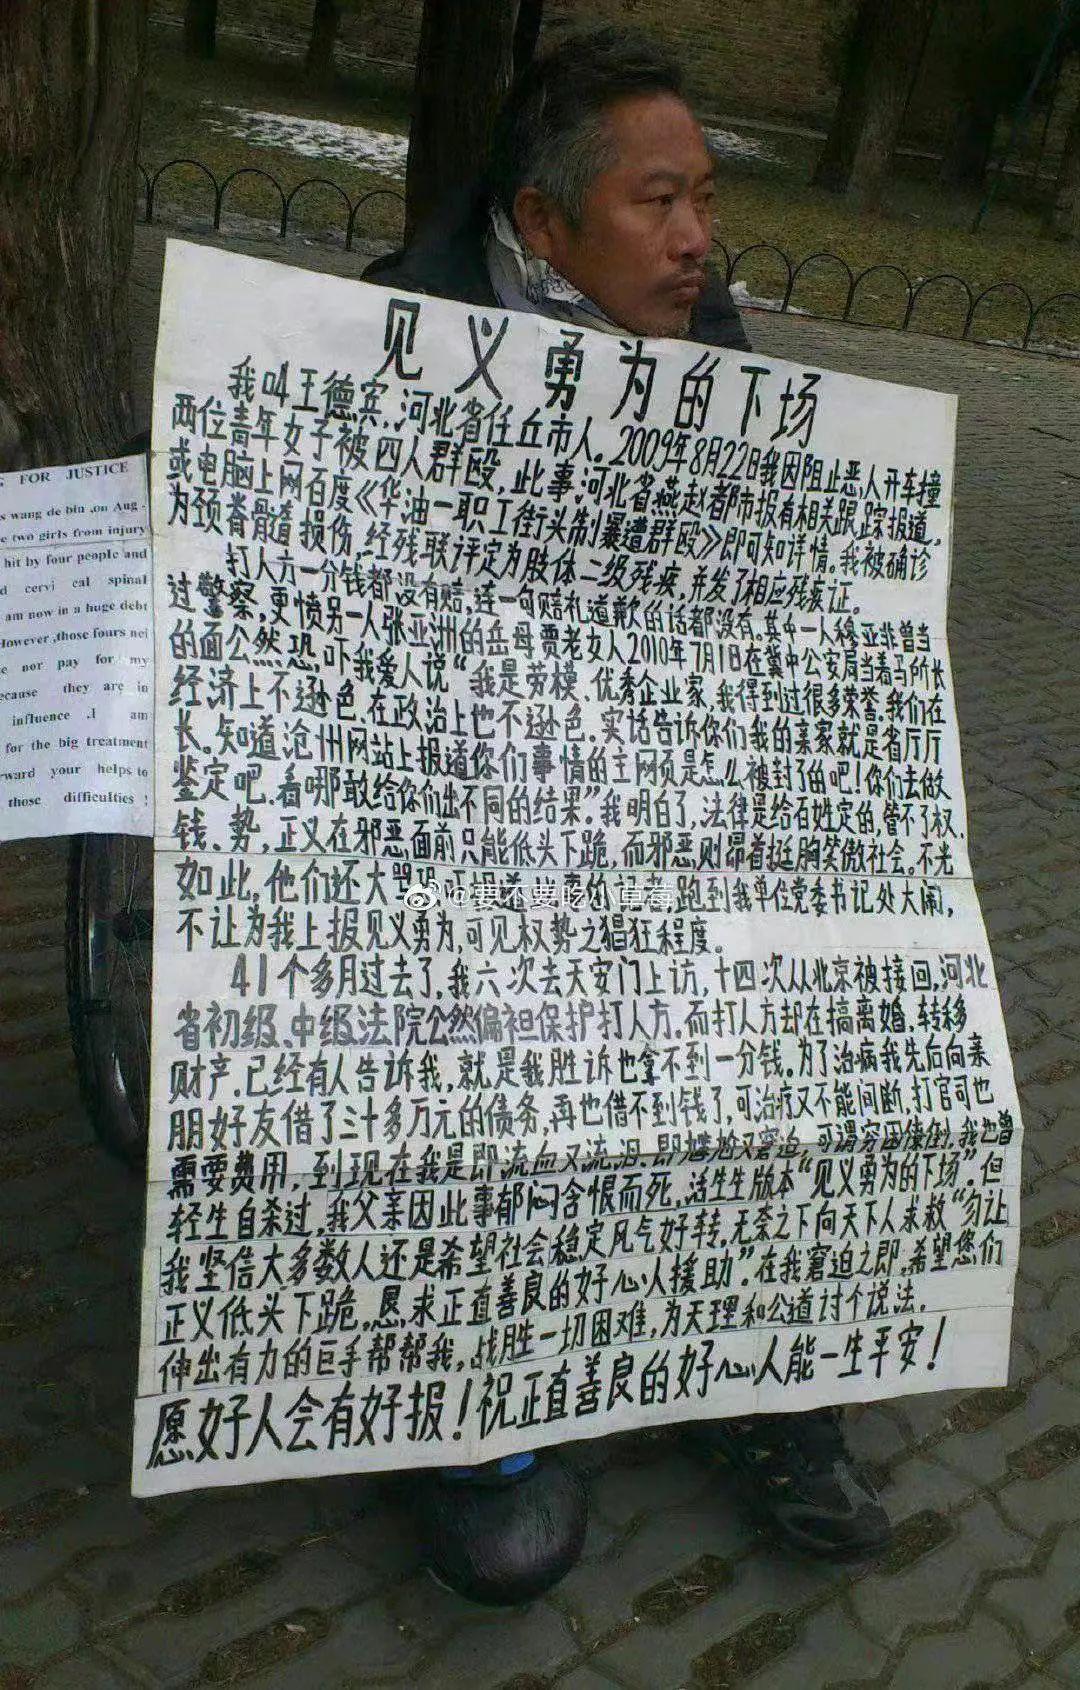 见义勇为的下场
我叫王德宾,河北省任丘市人。2009年8月22日我因阻止恶人开车撞
两位青年女子被四人群殴,此事河北省燕赵都市报有相关跟踪报道,
或电脑上网百度《华油一职工街头制暴遭群殴》即可知详情。我被确诊
为颈脊髓损伤,经残联评定为肢体二级残疾,并发了相应残疾证。
打人方一分钱都没有赔,连一句赔礼道歉的话都没有。其中一人穆亚非曾当
过警察,更愤另一人张亚洲的岳母贾老女人2010年7月1日在冀中公安局当着马所长
的面公然恐吓我爱人说“我是劳模、优秀企业家,我得到过很多荣誉。我们在
经济上不逊色,在政治上也不逊色。实话告诉你们我的亲家就是省厅厅
长。知道沧州网站上报道你们事情的主网页是怎么被封了的吧!你们去做
鉴定吧,看哪敢给你们出不同的结果”我明白了,法律是给百姓定的,管不了权、
钱、势,正义在邪恶面前只能低头下跪,而邪恶则昂首挺胸笑傲社会。不光
如此,他们还大骂 报道 的记者,跑到我单位党委书记处大闹,
不让为我上报见义勇为,可见权势之猖狂程度。
41个多月过去了,我六次去天安门上访,十四次从北京被接回,河北
省初级、中级法院公然偏袒保护打人方,而打人方却在搞离婚,转移
财产,已经有人告诉我,就是我胜诉也拿不到一分钱。为了治病我先后向亲
朋好友借了三十多万元的债务,再也借不到钱了,可治疗又不能间断,打官司也
需要费用,到现在我是即流血又流泪、即尴尬又窘迫,可谓穷困潦倒,我也曾
轻生自杀过,我父亲因此事郁闷含恨而死,活生生版本“见义勇为的下场”。但
我坚信大多数人还是希望社会稳定风气好转。无奈之下向天下人求救“勿让
正义低头下跪,恳求正直善良的好心人援助”。在我窘迫之即,希望您们
伸出有力的巨手帮帮我,战胜一切困难,为天理和公道讨个说法。
愿好人会有好报!祝正直善良的好心人能一生平安!
FOR JUSTICE
s wang de bin ,on Aug -
e two girls from injury
hit by four people and
d cervi cal spinal
am now in a huge debt
However ,those fours nei
e nor pay for my
ecause they are in
influence .I am
for the big treatment
rward your helps to
those difficulties!
@要不要吃小草莓